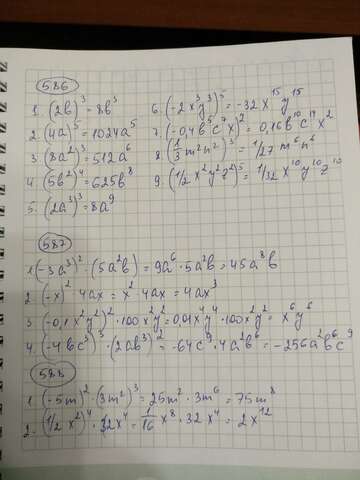 586
1. (2b)³ = 8b³
2. (4a)⁵ = 1024a⁵
3. (8a²)³ = 512a⁶
4. (5b²)⁴ = 625b⁸
5. (2a³)³ = 8a⁹
6. (-2x³y³)⁵ = -32x¹⁵y¹⁵
7. (-0,4b⁵c⁷x)² = 0,16b¹⁰c¹⁴x²
8. (1/3 m²n²)³ = 1/27 m⁶n⁶
9. (1/2 x²y²z²)⁵ = 1/32 x¹⁰y¹⁰z¹⁰
587
1. (-3a³)² · (5a²b) = 9a⁶ · 5a²b = 45a⁸b
2. (-x)² · 4ax = x² · 4ax = 4ax³
3. (-0,1x²y²)² · 100x²y² = 0,01x⁴y⁴ · 100x²y² = x⁶y⁶
4. (-4bc³)³ · (2ab³)² = -64c⁹ · 4a²b⁶ = -256a²b⁶c⁹
588
1. (-5m)² · (3m²)³ = 25m² · 3m⁶ = 75m⁸
2. (1/2 x²)⁴ · 32x⁴ = 1/16 x⁸ · 32x⁴ = 2x¹²